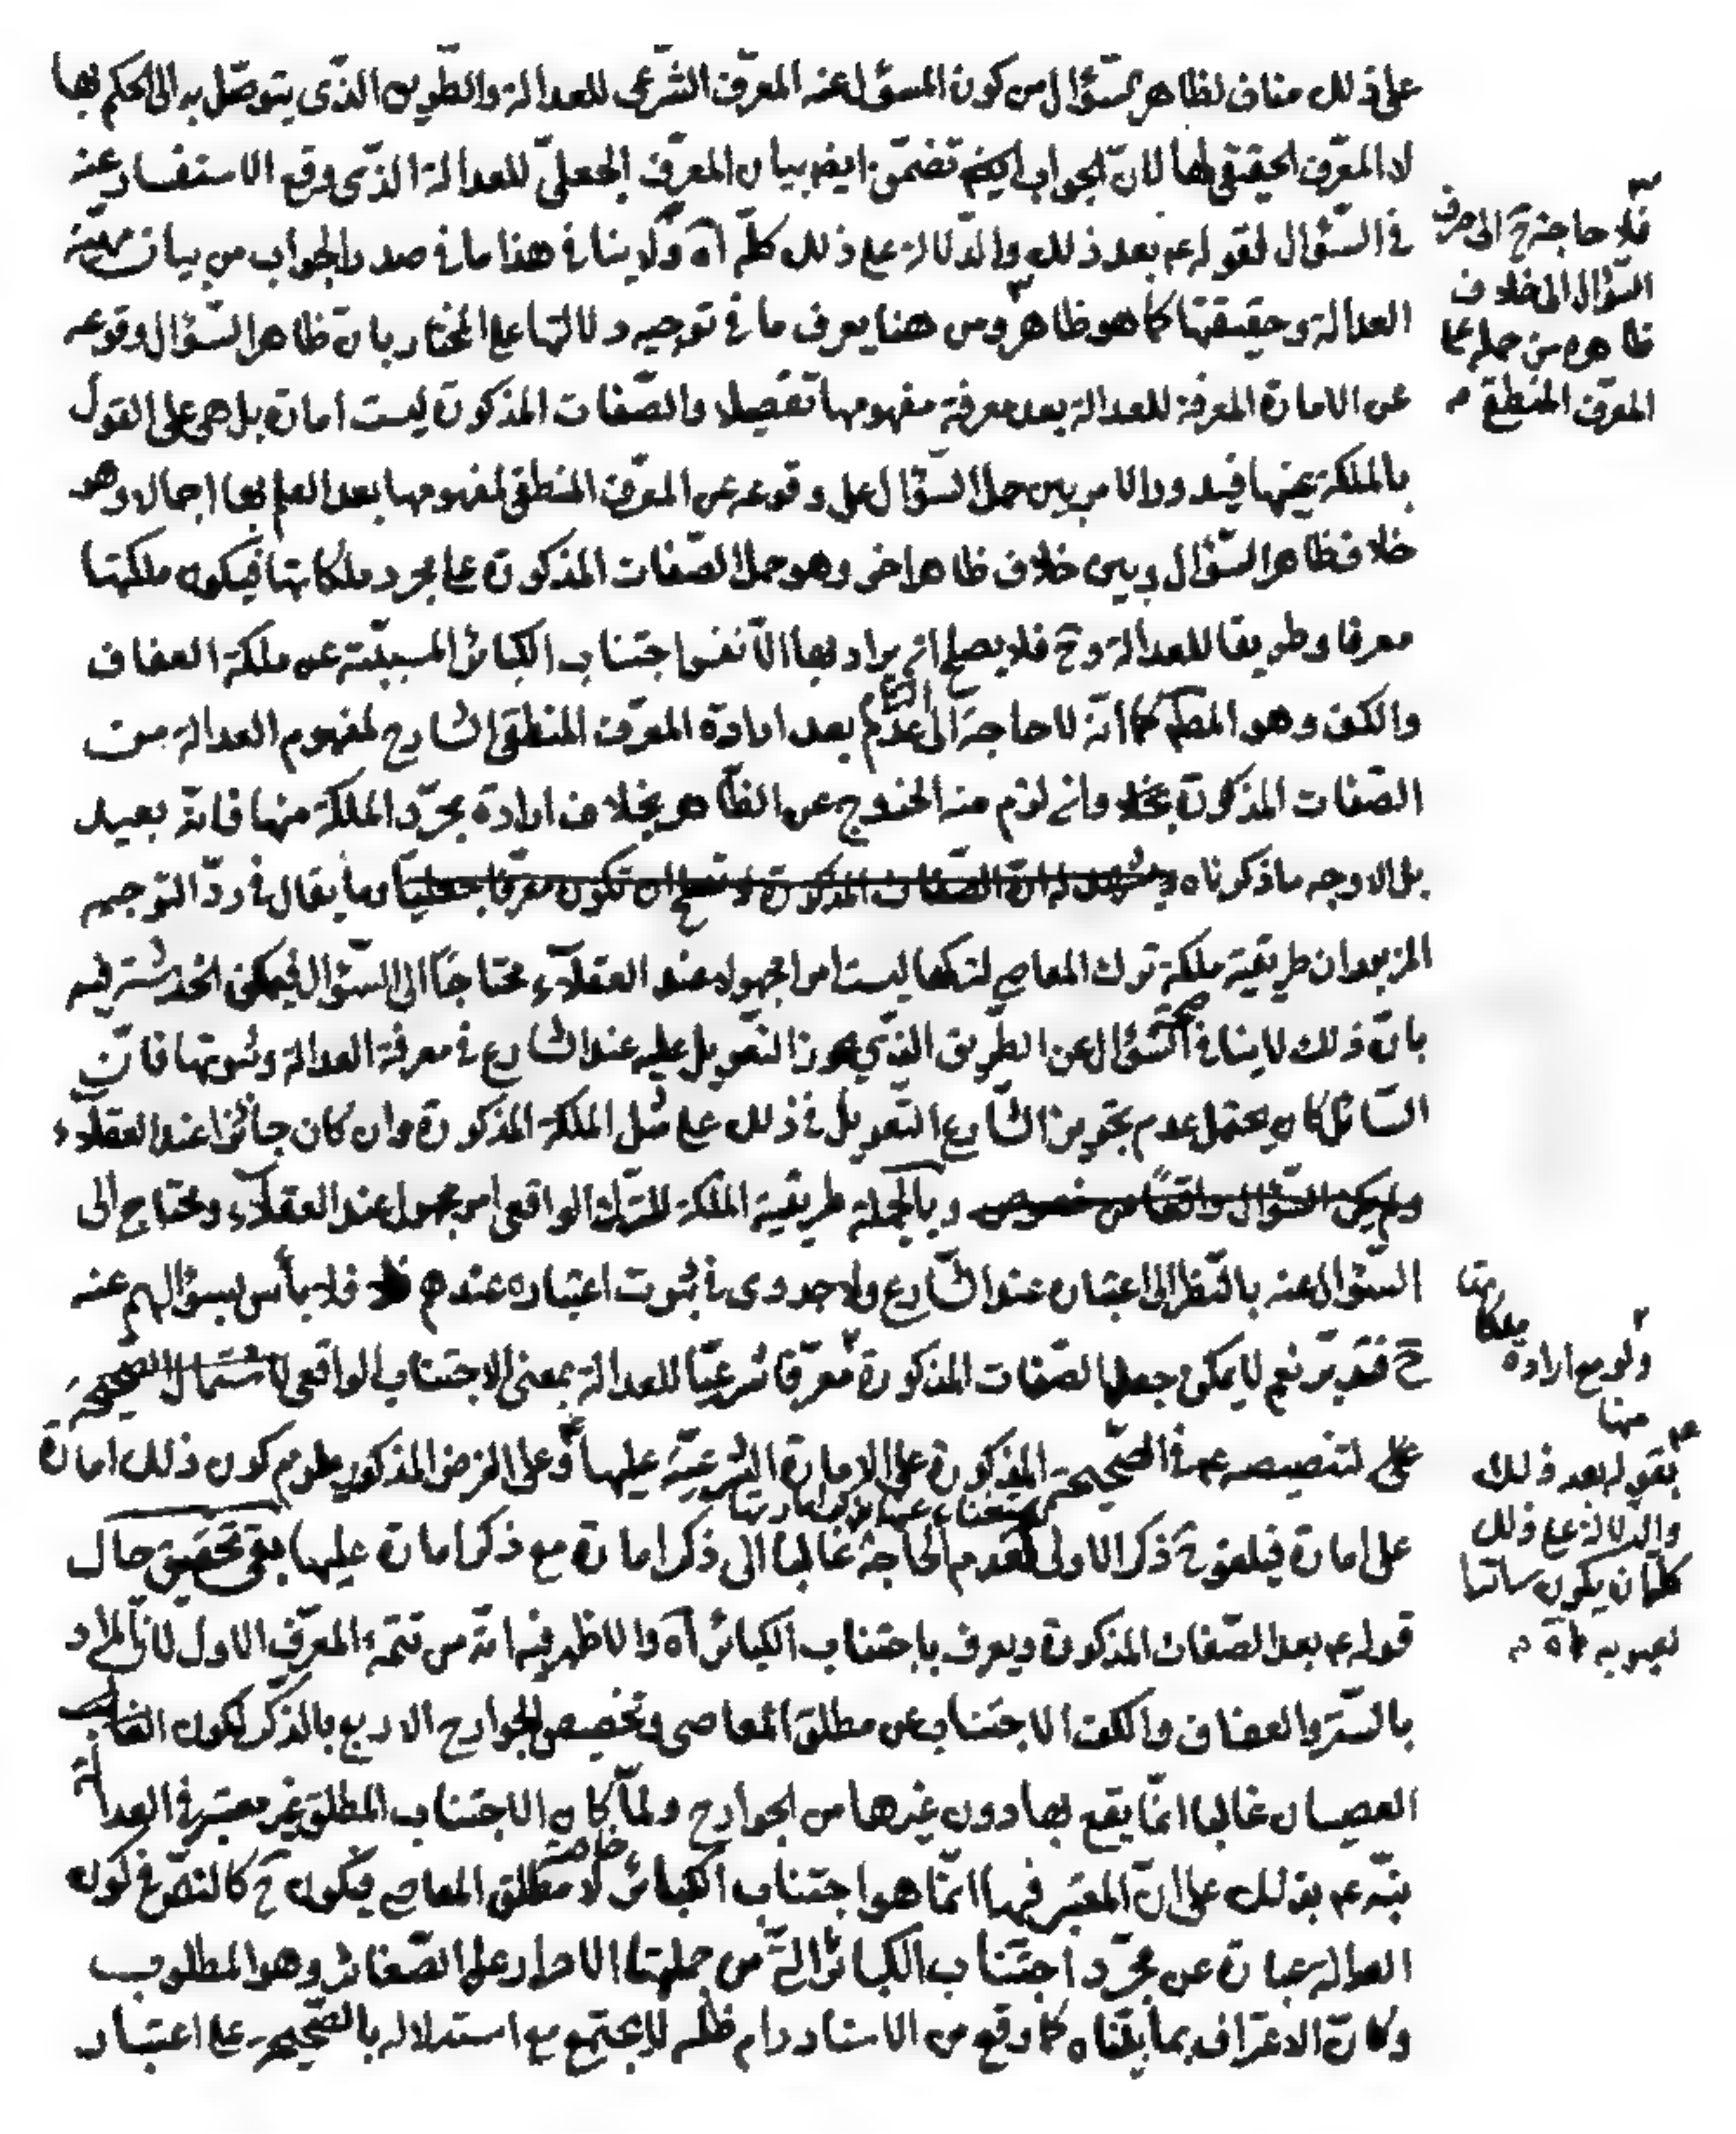 على ذلك مناف لظاهر السؤال من كون المسؤل عنه المعرّف الشّرعى للعدالة والطّريق الذّى يتوصّل به الى الحكم بها
لا المعرّف الحقيقى لها لانّ الجواب ايض تضمّن ايض بيان المعرّف الجعلىّ للعدالة الذّى وقع الاستفسار عنه
فى السّؤال لقوله ع بعد ذلك والدّلالة على ذلك كلّه آه ولا ينافى هذا ما فى صدر الجواب من بيان مهيّة
العدالة وحقيقتها كما هو ظاهر ومن هنا يعرف ما فى توجيه دلالتها على المختار بان ظاهر السّؤال وقوعه
عن الامارة المعرفة للعدالة بعد معرفة مفهومها تفصيلا والصّفات المذكورة ليست امارة بل هى على القول
بالملكة عينها فيدور الامر بين حمل السّؤال على وقوعه عن المعرّف المنطقى لمفهومها بعد العلم بها اجمالا وهو
خلاف ظاهر السّؤال وبين خلاف ظاهر اخر وهو حمل الصّفات المذكورة على مجرد ملكاتها فيكون ملكتها
معرفا وطريقا للعدالة وح فلا يصلح ان يراد بها الّا نفس اجتناب الكبائر المسببّة عن ملكة العفاف
والكف وهو المط كما انّه لا حاجة الى بعد ارادة المعرّف المنطقى الشارح لمفهوم العدالة من
الصّفات المذكورة وان لزم منه الخروج عن الظّاهر بخلاف ارادة مجرّد الملكة منها فانّه بعيد
بل الاوجه ما ذكرناه ويشهد له انّ الصّفات المذكورة لا تصلح ان تكون معرّفا جعليّا وما يقال فى ردّ التوجيه
المزبور ان طريقية ملكة ترك المعاصى لتركها ليست امرا مجهولا عند العقلاء محتاجًا الى السّؤال فيمكن الخدشة فيه
بانّ ذلك لا ينافى صحّة السّؤال عن الطّريق الذّى يجوز التّعويل عليه عند الشارع فى معرفة العدالة وثبوتها فانّ
السّائل كان يحتمل عدم تجويز الشّارع التّعويل فى ذلك على مثل الملكة المذكورة وان كان جائزا عند العقلاء
ولم يكن السّؤال واقعًا من خصوص وبالجملة طريقية الملكة للترك الواقعى امر مجهول عند العقلاء ومحتاج الى
السّؤال عنه بالنّظر الى اعتباره عند الشّارع ولا جدوى فى ثبوت اعتباره عندهم فلا بأس بسؤالهم عنه
ح فتدبّر نعم لا يمكن جعل الصّفات المذكورة معرّفا شرعيّا للعدالة بمعنى الاجتناب الواقعى لاشتمال الصّحيحة
على لتنصيصه ع فى الصّحيحة المذكورة على الامارة الشّرعيّة عليها وعلى الفرض المذكور يلزم كون ذلك امارة
على امارة فيلغو ح ذكر الاولى لعدم الحاجة غالبا الى ذكر امارة مع ذكر امارة عليها بقى تحقيق حال
قوله ع بعد الصّفات المذكورة ويعرف باجتناب الكبائر آه والاظهر فيه انّه من تتمّة المعرّف الاول لانّ المراد
بالسّتر والعفاف والكفّ الاجتناب عن مطلق المعاصى وتخصيص الجوارح الاربع بالذّكر لكون الغالب
العصيان غالبا انّما يقع بها دون غيرها من الجوارح ولمّا كان الاجتناب المطلق غير معتبر فى العدالة
نبّه ع بذلك على انّ المعتبر فيها انّما هو اجتناب الكبائر خاصّة لا مطلق المعاصى فيكون ح كالنصّ فى كون
العدالة عبارة عن مجرّد اجتناب الكبائر الّتى من جملتها الاصرار على الصّغائر وهو المطلوب
وكانّ الاعتراف بما بيّناه كما وقع من الاستاد دام ظلّه لا يجتمع مع استدلاله بالصّحيحة على اعتبار
فلا حاجة ح الى صرف
السّؤال الى خلاف
ظاهره من حمله على
المعرّف المنطقى م
ولو مع ارادة
ملكاتها
منها
بقوله بعد ذلك
والدلالة على ذلك
كله ان يكون ساترا
لعيوبه آه م